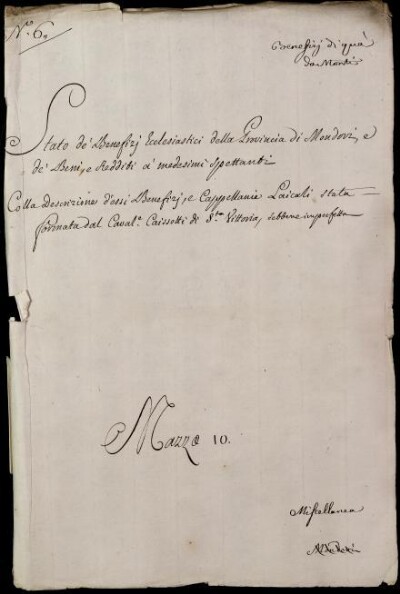 N.º 6.
Benefizj di quà
da Monti
Stato de' Benefizj Ecclesiastici della Provincia di Mondovì, e
de' Beni, e Redditi a' medesimi spettanti
Colla Descrizione d'essi Benefizj, e Cappellanie Laicali stata
formata dal Caval.e Caissotti di S.ta Vittoria, sebbene imperfetta
Mazzo 10.
Miscellanea